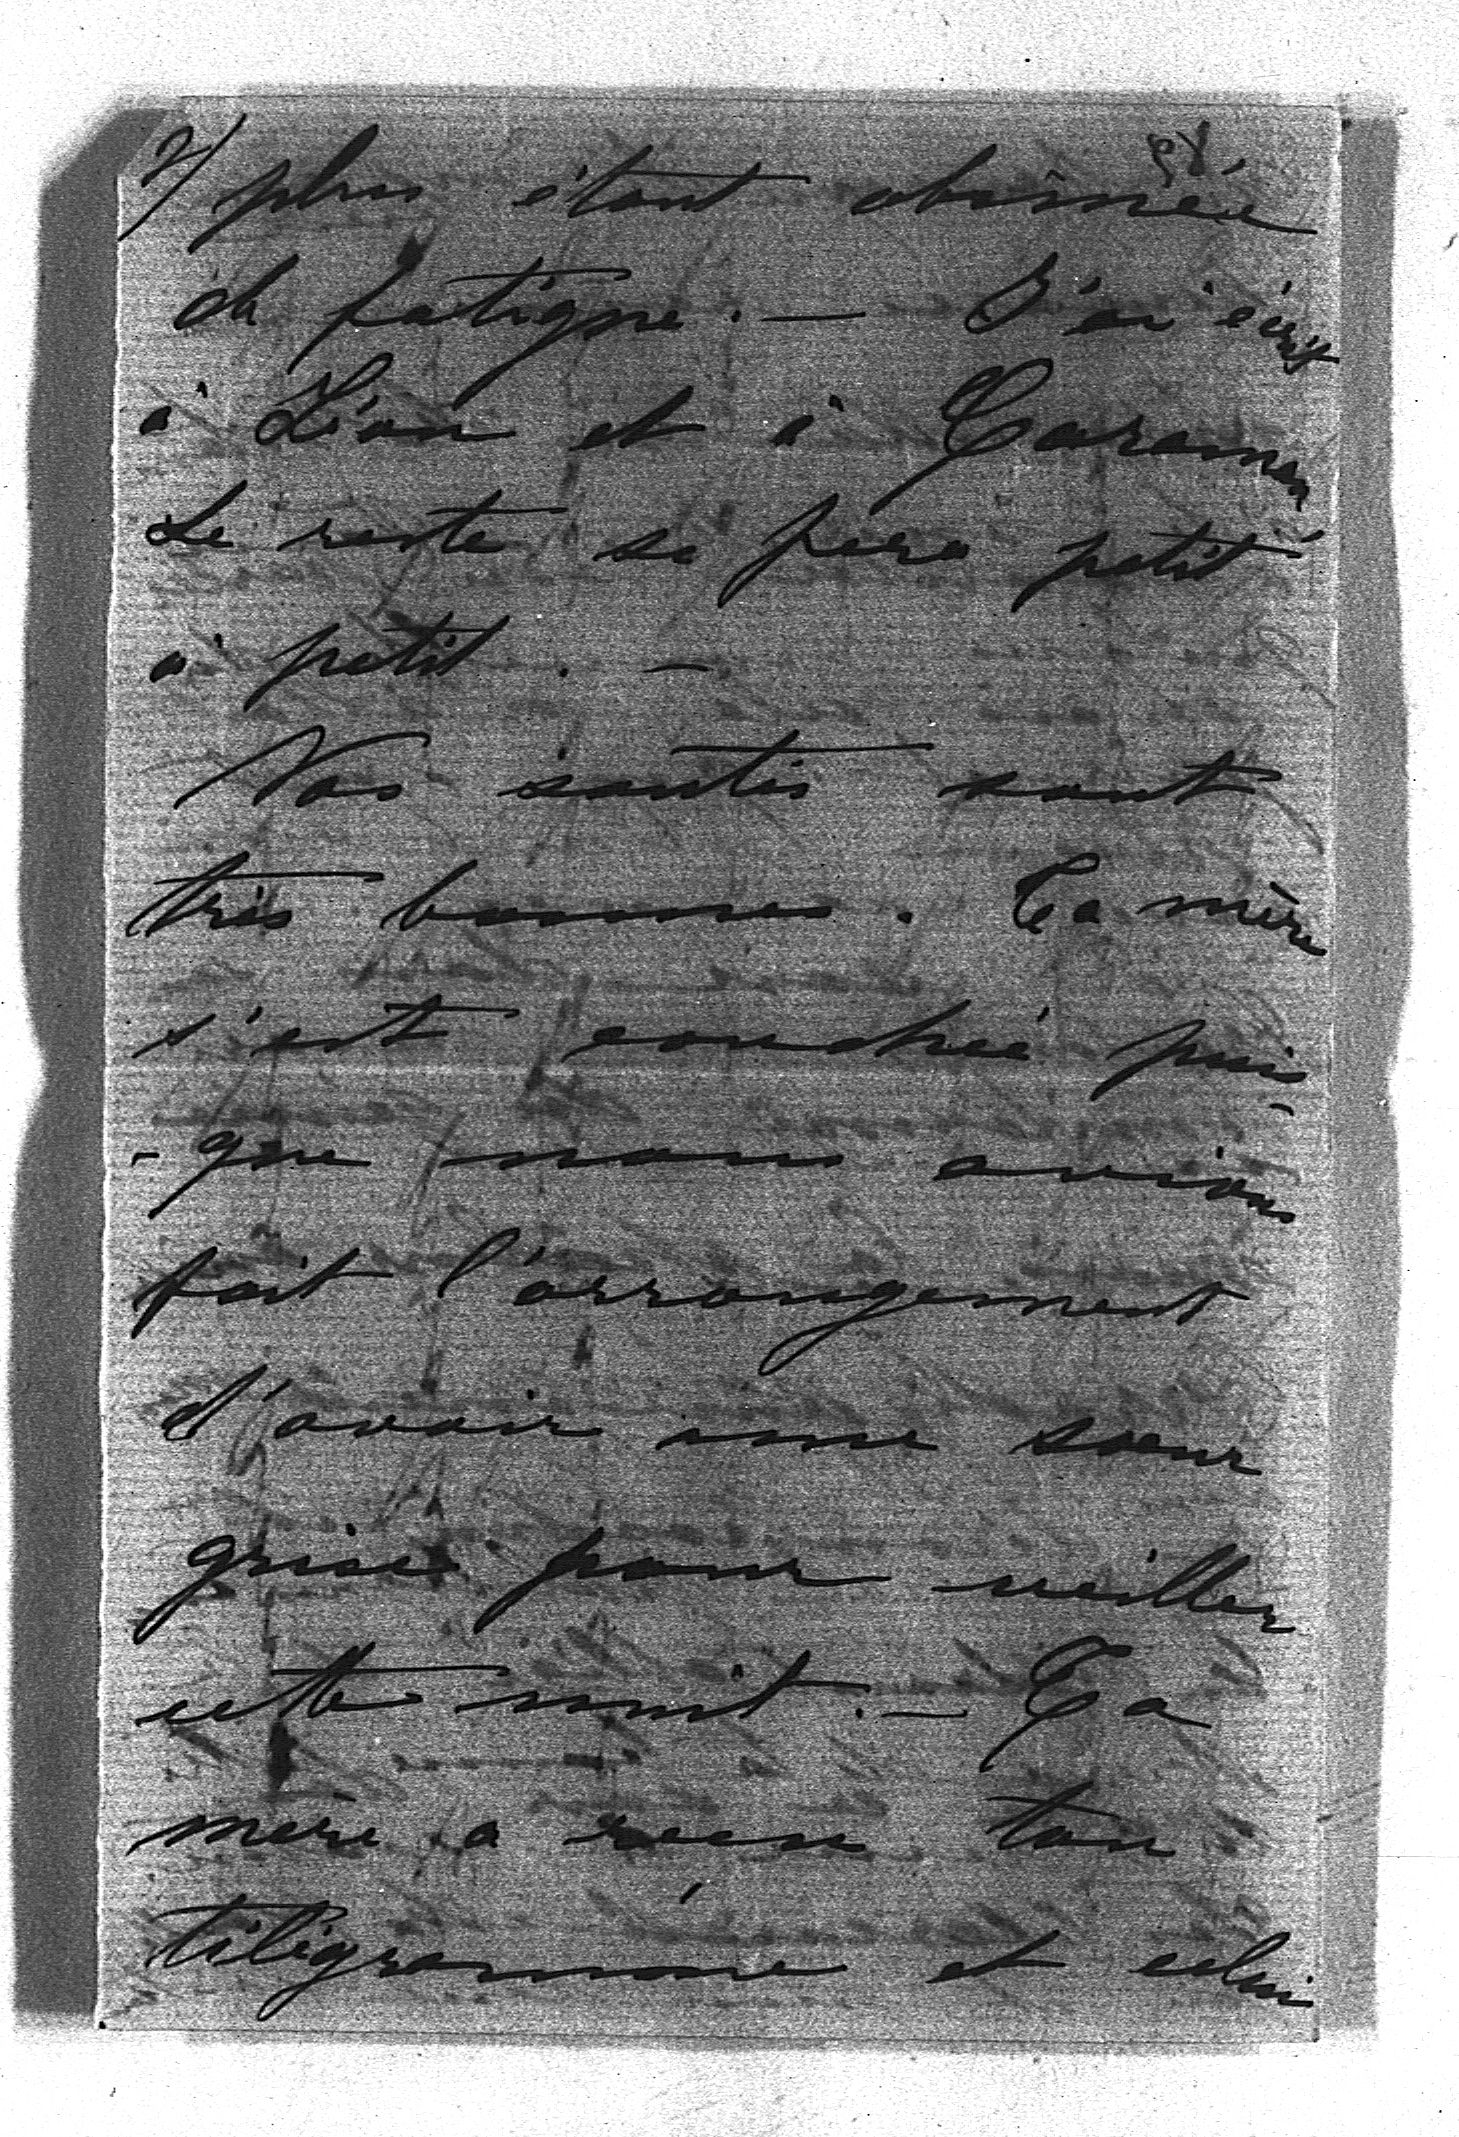 2/ plus étant abimée
de fatigue. — J'ai écrit
à Léon et à Caraman
Le reste se fera petit
à petit. —
Nos santés sont
très bonnes. Ta mère
s'est couchée puis-
-que nous avions
fait l'arrangement
d'avoir une sœur
grise pour veiller
cette nuit. — Ta
mère a reçu ton
télégramme et celui